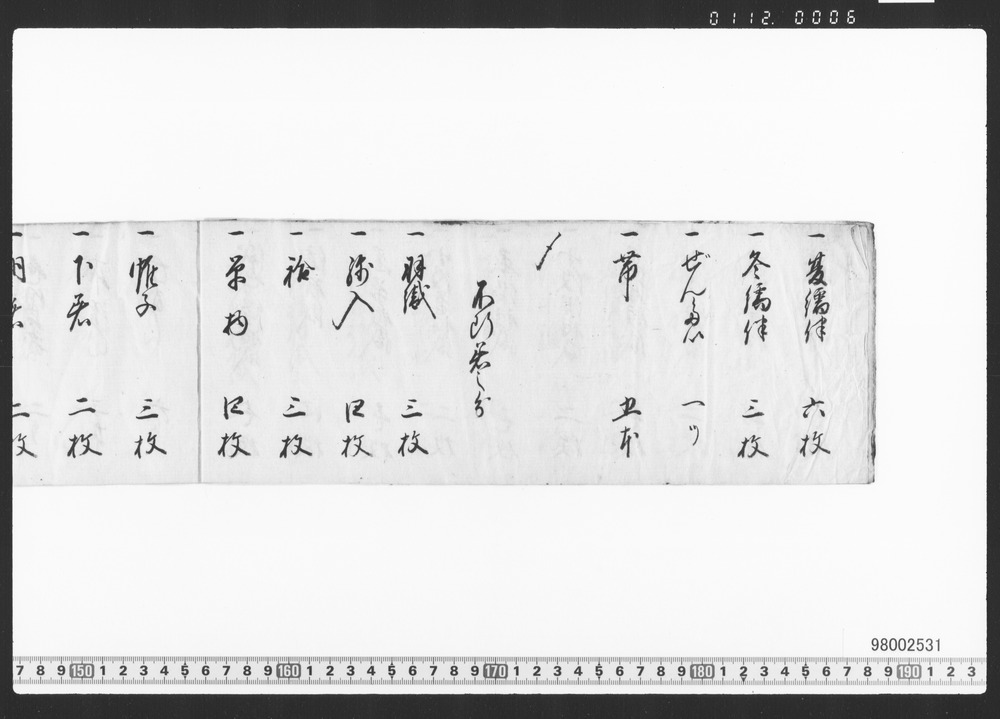 0112. 0006
一 夏襦袢 六枚
一 冬襦袢 三枚
一 ぜんまい 一ツ
一 帯 五本
〆
不断着之分
一 羽織 三枚
一 綿入 四枚
一 袷 三枚
一 単物 四枚
一 帷子 三枚
一 下着 二枚
一 着 二枚
98002531
7 8 9 150 1 2 3 4 5 6 7 8 9 160 1 2 3 4 5 6 7 8 9 170 1 2 3 4 5 6 7 8 9 180 1 2 3 4 5 6 7 8 9 190 1 2 3